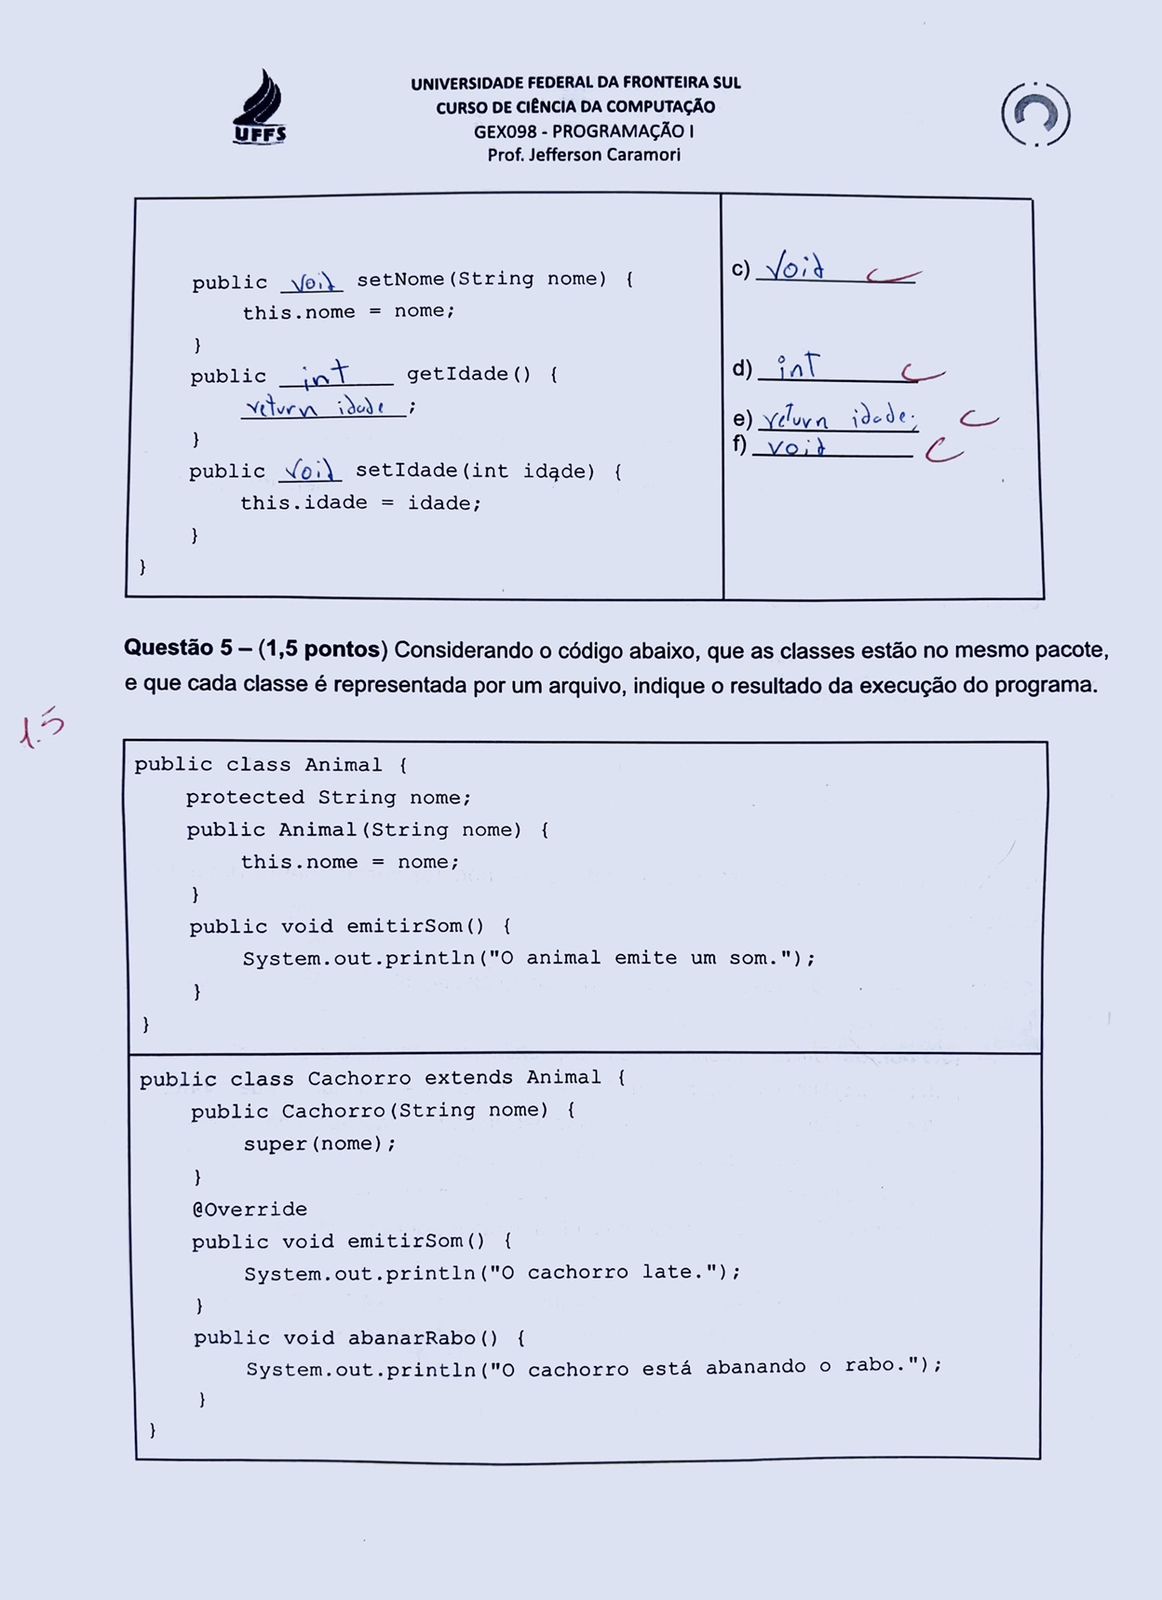 UFFS
UNIVERSIDADE FEDERAL DA FRONTEIRA SUL
CURSO DE CIÊNCIA DA COMPUTAÇÃO
GEX098 - PROGRAMAÇÃO I
Prof. Jefferson Caramori
public void setNome(String nome) {
this.nome = nome;
}
public int getIdade() {
return idade;
}
public void setIdade(int idade) {
this.idade = idade;
}
}
c) void C
d) int C
e) return idade; C
f) void C
Questão 5 – (1,5 pontos) Considerando o código abaixo, que as classes estão no mesmo pacote,
e que cada classe é representada por um arquivo, indique o resultado da execução do programa.
1.5
public class Animal {
protected String nome;
public Animal(String nome) {
this.nome = nome;
}
public void emitirSom() {
System.out.println("O animal emite um som.");
}
}
public class Cachorro extends Animal {
public Cachorro(String nome) {
super(nome);
}
@Override
public void emitirSom() {
System.out.println("O cachorro late.");
}
public void abanarRabo() {
System.out.println("O cachorro está abanando o rabo.");
}
}